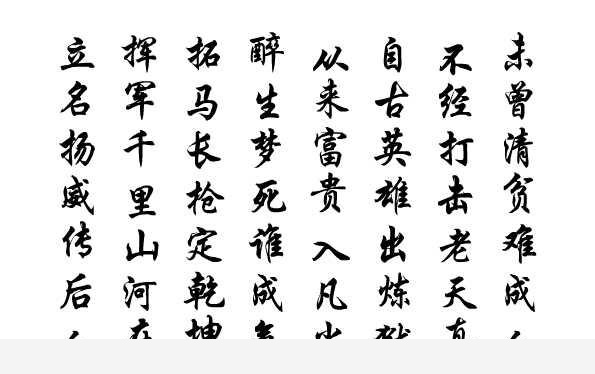 未曾清贫难成
不经打击老天
自古英雄出炼
从来富贵入凡
醉生梦死谁成
拓马长枪定乾
挥军千里山河
立名扬威传后